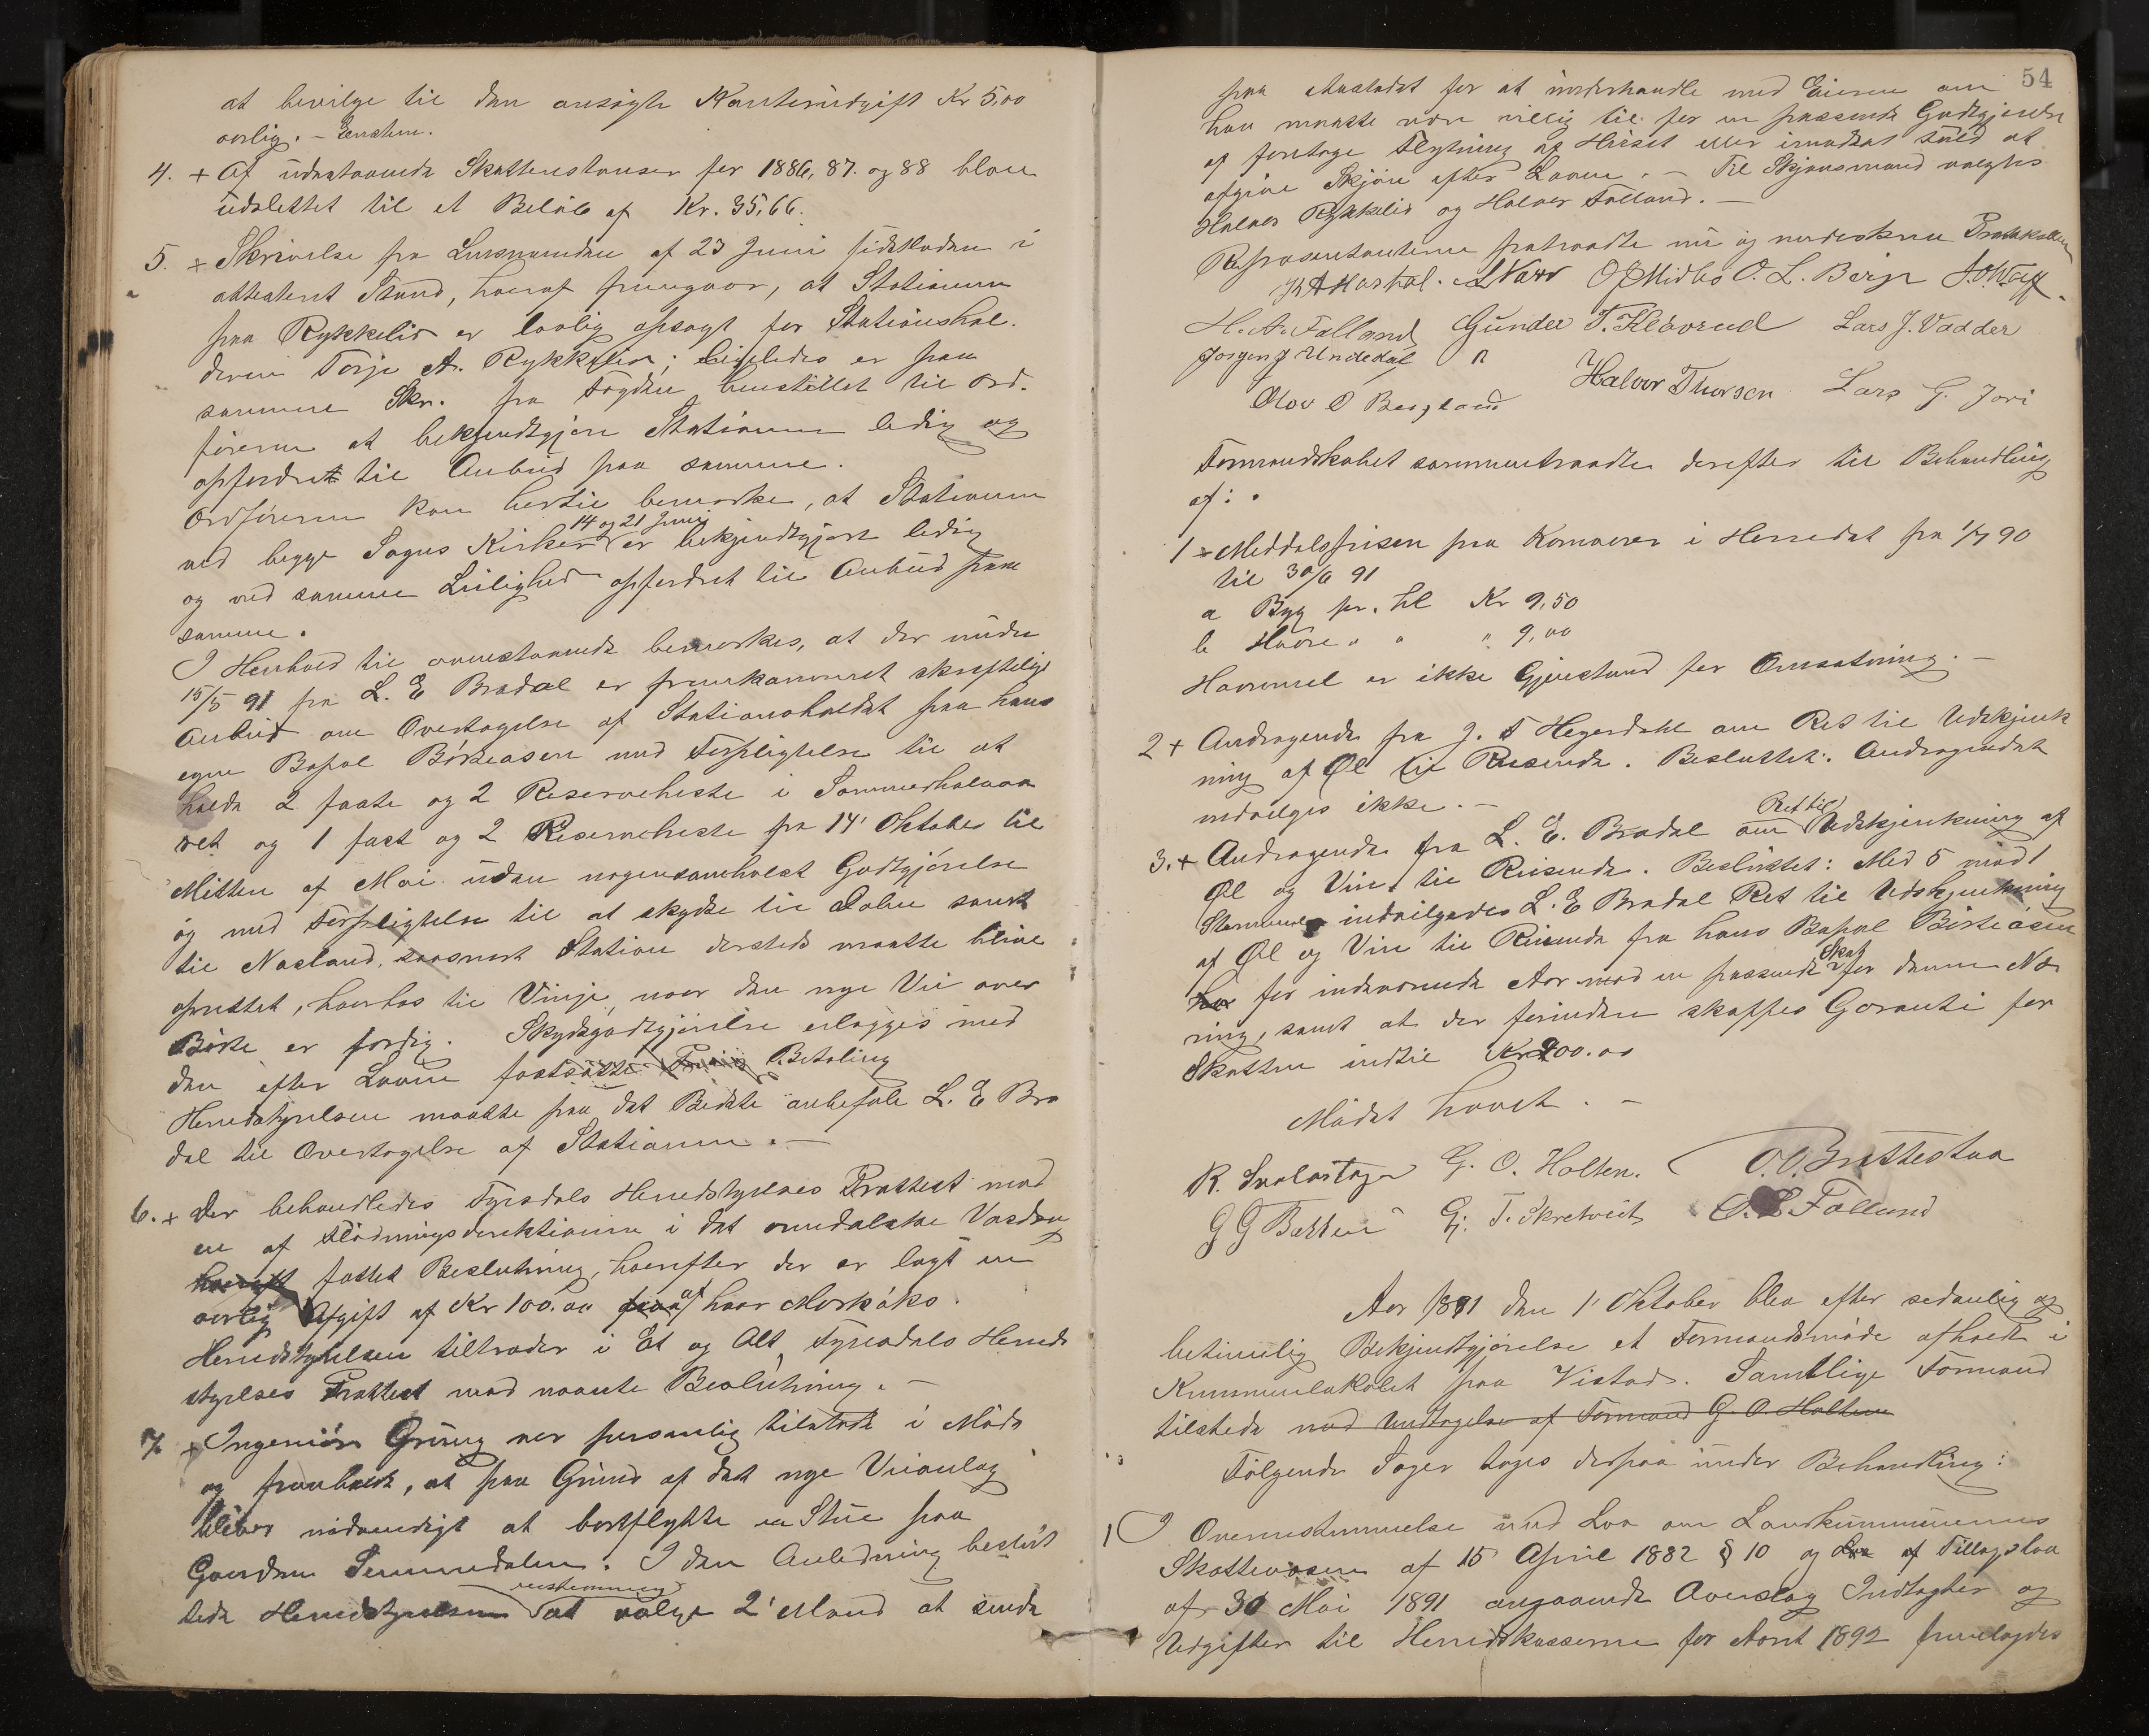 at bevilge til den ansøgte Kontorudgift Kr 5,00
aarlig. – Enstem.
4. + Af udestaaende Skatterestanser for 1886, 87. og 88 blev
udslettet til et Beløb af Kr. 35,66.
5. + Skrivelse fra Lensmanden af 23 Juni sidstleden i
attesteret Stand, hvoraf fremgaar, at Stationen
paa Rykkelid er lovlig opsagt for Stationshol-
deren Torje A. Rykkelid; ligeledes er paa
samme Skr. fra Fogden henstillet til Ord-
føreren at bekjendtgjøre Stationen ledig og
opfordret til Anbud paa samme.
Ordføreren kan hertil bemærke, at Stationen
14 og 21 Juni
ved begge Sognes Kirker er bekjendtgjort ledig
og ved samme Leilighed opfordret til Anbud paa
samme.
I Henhold til ovenstaaende bemærkes, at der under
15/5 91 fra L. E Bradal er fremkommet skriftligt
Anbud om Overtagelse af Stationsholdet paa hans
egen Bopæl Börteaasen med Forpligtelse til at
holde 2 faste og 2 Reserveheste i Sommerhalvaa
ret og 1 fast og 2 Reserveheste fra 14' Oktober til
Mitten af Mai uden nogensomhelst Godtgjørelse
og med Forpligtelse til at skydse til Dalen samt
til Næsland, saasnart Station dersteds maatte blive
oprettet, hvorhos til Vinje, naar den nye Vei over
Börte er færdig. Skydsgodtgjørelse erlægges med
den efter Loven fastsatte Betaling
Herredstyrelsen maatte paa det Bedste anbefale L. E Bra
dal til Overtagelse af Stationen. –
6. + Der behandledes Fyresdals Herredstyrelses Protest mod
en af Flødningsdirektionen i det arendalske Vasdrag
fattet Beslutning, hvorefter der er lagt en
aarlig Afgift af Kr 100.00 af hver Merkøks.
Herredstyrelsen tiltræder i Et og Alt Fyresdals Herreds
styrelses Protest mod nævnte Beslutning. –
7. + Ingeniør Grung var personlig tilstede i Møde
og fremholdt, at paa Grund af det nye Veianlæg
bliver nødvendigt at bortflytte en Stue paa
Gaarden Semmedalen. I den Anledning beslut
enstemmig
tede Herredstyrelsen at vælge 2' Mænd at sende
54
paa Aastedet for at underhandle med Eieren om
han maatte være villig til for en passende Godtgjørelse
at foretage Flytning af Huset eller imodsat Fald at
afgive Skjøn efter Loven. – Til Skjønsmænd valgtes
Halvor Rykkelid og Halvor Folland. –
Repræsentanterne fratraadte nu og underskrev Protokollen
O J Midbö O. L. Berge
H. A. Folland Gunder T. Kleövrud Lars J. Vadder
Jørgen J Undedal
Halvor Thorsen Lars G. Jori
Olov O Bergland
Formandskabet sammentraadte derefter til Behandling
af:
1 + Meddelsprisen paa Kornvarer i Herredet fra 1/7 90
til 30/6 91
a Byg pr. hl Kr 9,50
b Havre " " " 9,00
Havremel er ikke Gjenstand for Omsætning. –
2 + Andragende fra J. T Hegerdahl om Ret til Udskjenk
ning af Øl til Reisende. Besluttet: Andragendet
indvilges ikke. –
Ret til
3. + Andragende fra L. E. Bradal om Udskjenkning af
Øl og Vin til Reisende. Besluttet: Med 5 mod 1
Stemme indvilgedes L. E Bradal Ret til Udskjenkning
af Øl og Vin til Reisende fra hans Bopæl Börteåsen
Skat
for indeværende Aar mod en passende for denne Næ
ring, samt at der forinden skaffes Garanti for
Skatten indtil Kr 200.00
Mødet hævet. –
R. Svalastoga G. O. Holten. O. O. Brattestaa
G G Bakken Gj. T. Skretveit O. L Folland
Aar 1891 den 1' Oktober blev efter sedvanlig og
betimelig Bekjendtgjørelse et Formandsmøde afholdt i
Kommunelokalet paa Vistad. Samtlige Formænd
tilstede med Undtagelse af Formand G. O. Holten
Følgende Sager toges derpaa under Behandling:
1 I Overensstemmelse med Lov om Landkommunernes
Skattevæsen af 15 April 1882 § 10 og Lov af Tillægslov
af 30 Mai 1891 angaaende Overslag Indtægter og
Udgifter til Herredskasserne for Aaret 1892 fremlagdes